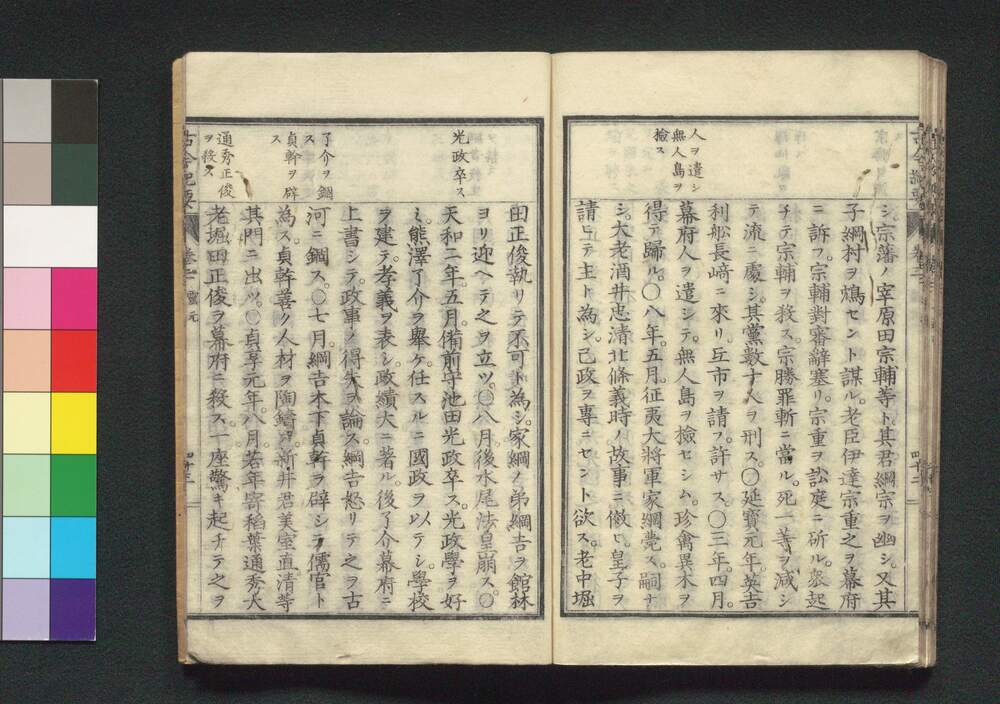 人ヲ遣シ
無人島ヲ
撿ス
シ。宗藩ノ宰原田宗輔等ト。其君綱宗ヲ幽シ。又其
子綱村ヲ鴆セント謀ル。老臣伊達宗重之ヲ幕府
ニ訴フ。宗輔對審辭塞リ。宗重ヲ訟庭ニ斫ル。衆起
チテ宗輔ヲ殺ス。宗勝罪斬ニ當ル。死一等ヲ減シ
テ流ニ處シ。其黨數十人ヲ刑ス。〇延寶元年。英吉
利船長﨑ニ來リ。互市ヲ請フ。許サス。〇三年。四月。
幕府人ヲ遣シテ。無人島ヲ撿セシム。珍禽異木ヲ
得テ歸ル。〇八年。五月。征夷大將軍家綱薨ス。嗣ナ
シ。大老酒井忠清北條義時ノ故事ニ傚ヒ。皇子ヲ
請ヒテ主ト為シ。己政ヲ專ニセント欲ス。老中堀
四十二
光政卒ス
了介ヲ錮
ス
貞幹ヲ辟
ス
通秀正俊
ヲ殺ス
田正俊執リテ不可ト為シ。家綱ノ弟綱吉ヲ館林
ヨリ迎ヘテ之ヲ立ツ。〇八月。後水尾法皇崩ス。〇
天和二年。五月。備前守池田光政卒ス。光政學ヲ好
ミ。熊澤了介ヲ舉ケ。任スルニ國政ヲ以テシ。學校
ヲ建テ。孝義ヲ表シ。政績大ニ著ル。後了介幕府ニ
上書シテ。政事ノ得失ヲ論ス。綱吉怒リテ之ヲ古
河ニ錮ス。〇七月。綱吉木下貞幹ヲ辟シテ。儒官ト
為ス。貞幹善ク人材ヲ陶鑄ス。新井君美室直清等
其門ニ出ツ。〇貞享元年。八月。若年寄稻葉通秀大
老堀田正俊ヲ幕府ニ殺ス。一座驚キ起チテ之ヲ
古今紀要
四十三